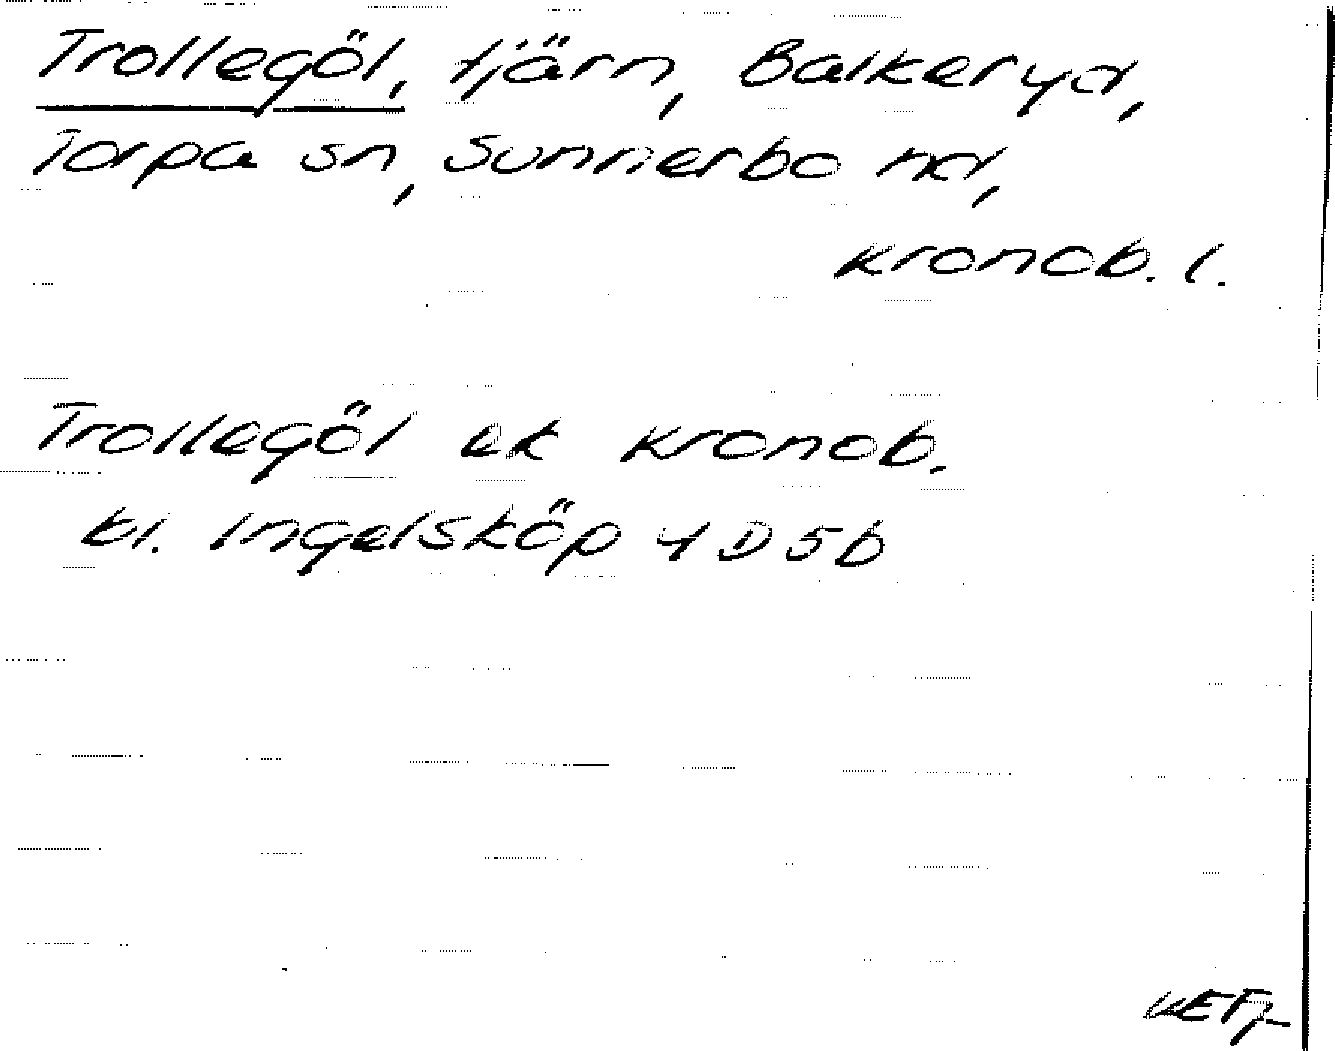 Trollegöl, tjärn, Balkeryd,
Torpa sn, Sunnerbo hd,
Kronob. l.
Trollegöl ek Kronob.
bl. Ingelsköp 4D5b